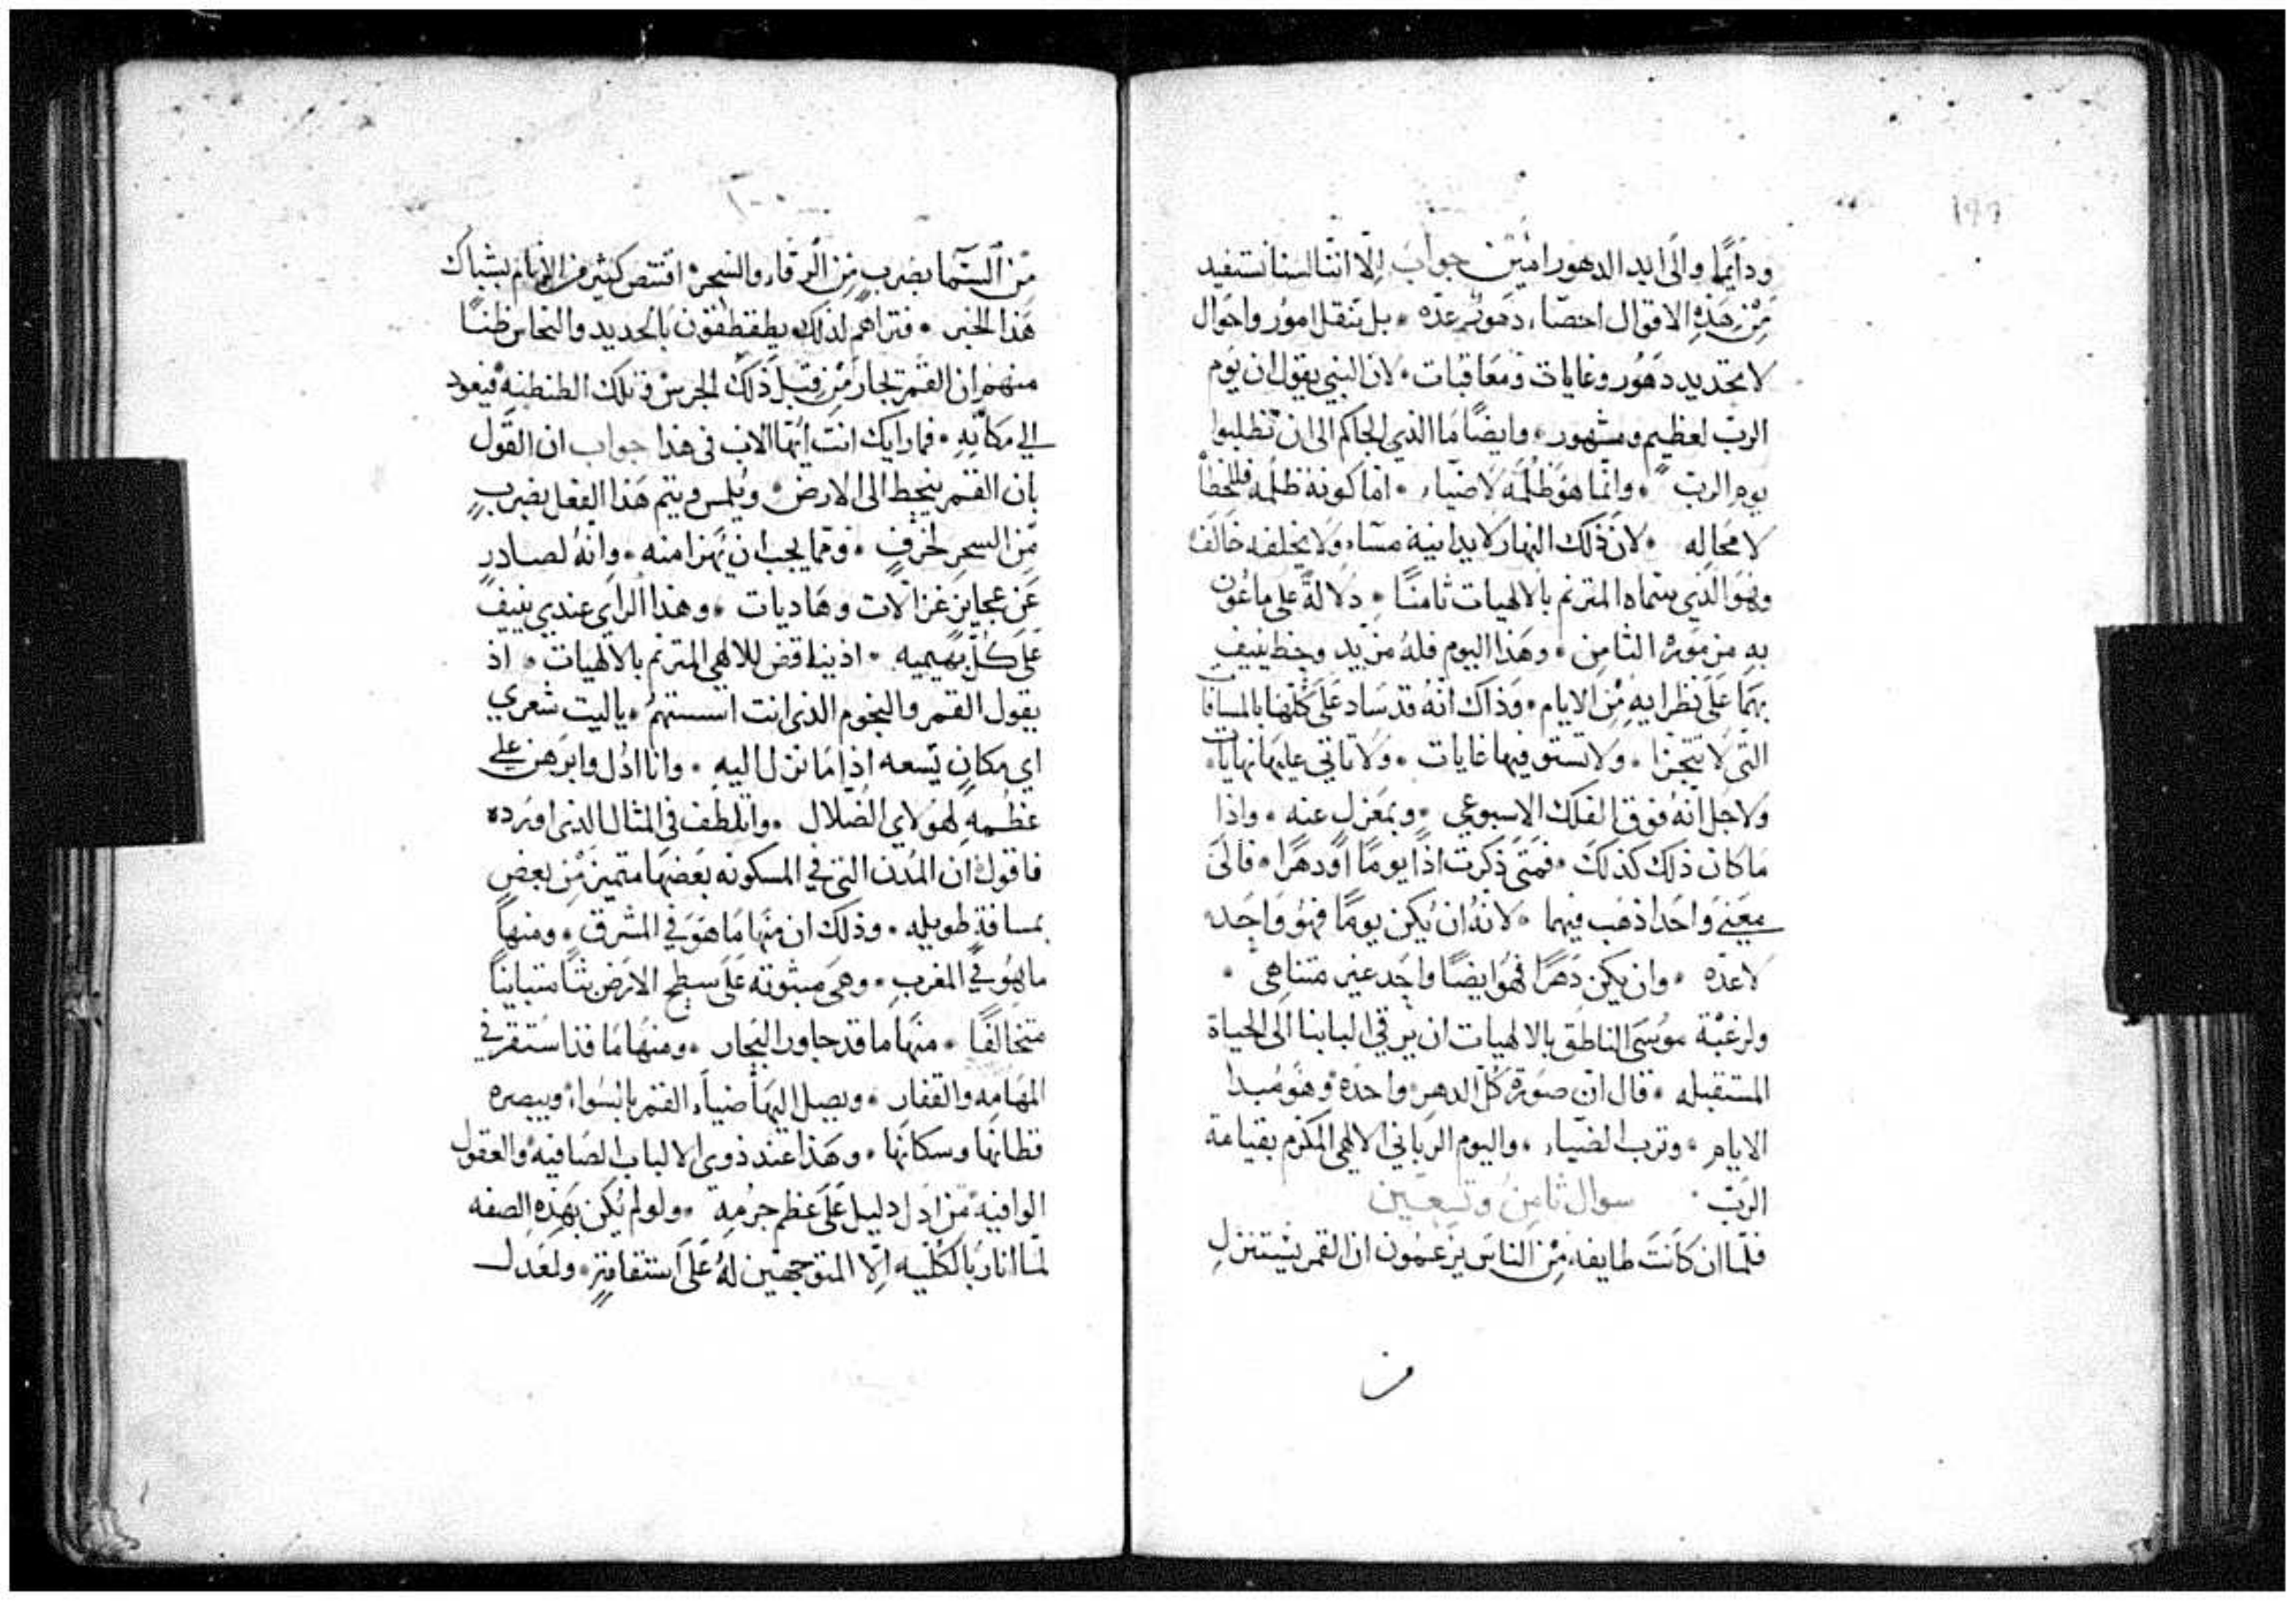 ودايمًا والى ابد الدهور امين جواب الا اننا لسنا نستفيد
من هذه الاقوال احصاء دهور عده • بل تنقل امور واحوال
لا تحديد دهور وغايات ومعاقبات • لان النبي يقول ان يوم
الرب لعظيم ومشهور • وايضًا ما الذي الجاكم الى ان تطلبوا
يوم الرب • وانما هو ظلمه لا ضياء • اما كونه ظلمه فللخطا
لا محاله • لان ذلك النهار لا يدانيه مساء ولا يخلفه خالف
وهو الذي سماه المترنم بالالهيات ثامنًا • دلالة على ما عون
به من مومر الثامن • وهذا اليوم فله مزيد وحظ ينيف
بهما على نظرايه من الايام • وذاك انه قد ساد على كلها بالمسافات
التى لا تتجزا • ولا تستوفيها غايات • ولا تاتي عليها نهايات •
ولاجل انه فوق الفلك الاسبوعي • وبمعزل عنه • واذا
ما كان ذلك كذلك • فمتى ذكرت اذًا يومًا او دهرًا • فالى
معنى واحد اذهب فيهما • لانه ان يكن يومًا فهو واحد
لا عده • وان يكن دهرًا فهو ايضًا واحد غير متناهى •
ولرغبة موسى الناطق بالالهيات ان يرقي البابنا الى الحياة
المستقبله • قال ان صورة كل الدهر واحده وهو مبدا
الايام • وترب الضياء • واليوم الرباني الالهى المكرم بقيامة
الرب • سوال ثامن وتسعين
فلما ان كانت طايفه من الناس يزعمون ان القمر يستنزل
من
من السما بضرب من الرقاء والسحر • اقتنص كثير من الانام بشباك
هذا الخبر • فتراهم لذلك يطقطقون بالحديد والنحاس ظنًا
منهم ان القمر يحار من قبل ذلك الجرس وتلك الطنطنه فيعود
الى مكانه • فما رايك انت ايها الاب فى هذا جواب ان القول
بان القمر ينحط الى الارض • ويلمس ويتم هذا الفعل بضرب
من السحر لخرف • ومما يجب ان يهزا منه • وانه لصادر
عن عجايز غزالات وهاديات • وهذا الراي عندي ينيف
على كل بهيميه • اذ يناقض للالهي المترنم بالالهيات • اذ
يقول القمر والنجوم الذى انت اسستهم • ياليت شعري
اي مكان يسعه اذا ما نزل اليه • وانا ادل وابرهن على
عظمه لهولاي الضلال • واتلطف فى المثال الذى اورده
فاقول ان المدن التى في المسكونه بعضها متميز من بعض
بمسافة طويله • وذلك ان منها ما هو في المشرق • ومنها
ما هو في المغرب • وهى مبثوثه على سطح الارض بثًا متباينًا
متخالفًا • منها ما قد جاور البحار • ومنها ما قد استقر في
المهامه والقفار • ويصل اليها ضياء القمر بالسواء ويبصره
قطانها وسكانها • وهذا عند ذوى الالباب الصافيه والعقول
الوافيه من ادل دليل على عظم جرمه • ولو لم يكن بهذه الصفه
لما انار بالكليه الا المتوجهين له على استقامة • ولعدل